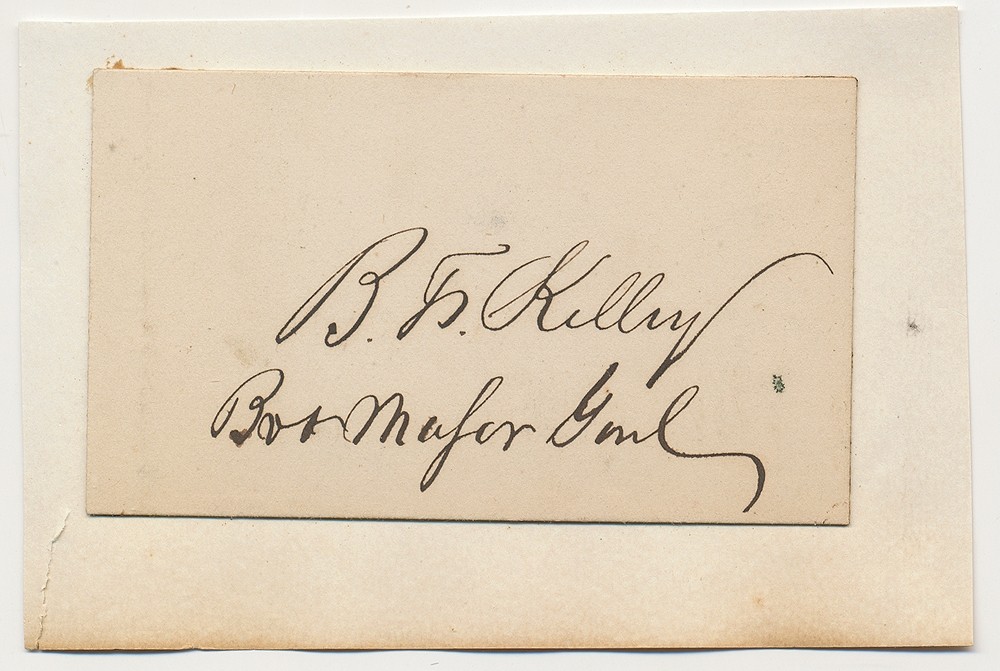 B. F. Kelley
Bvt Major Genl